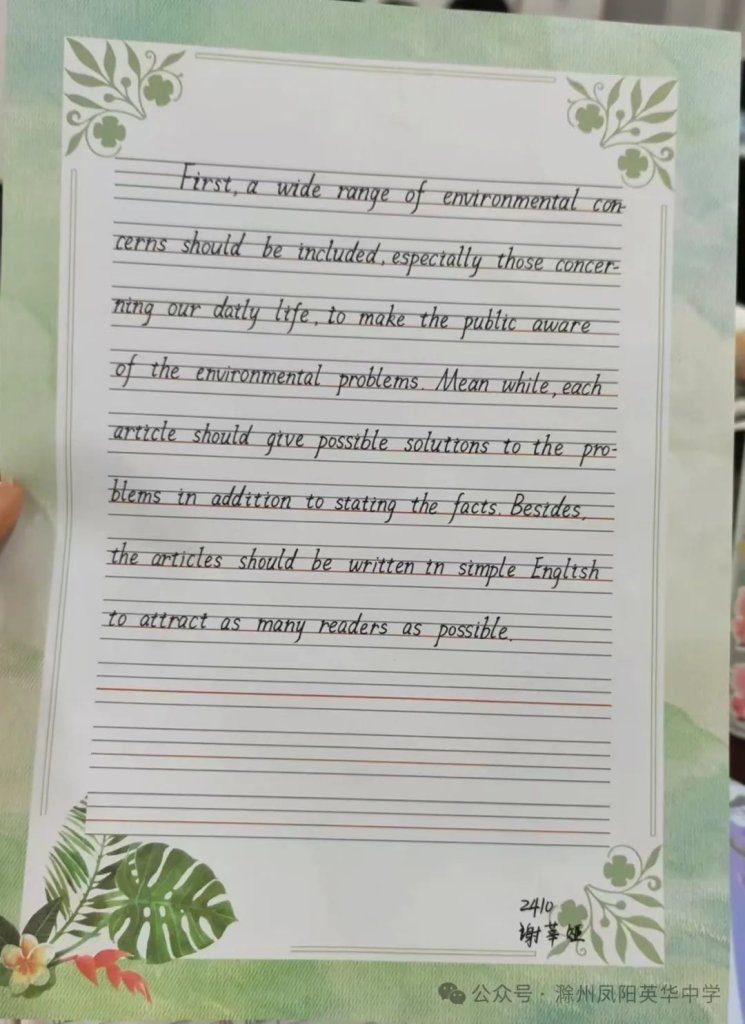 First, a wide range of environmental con-
cerns should be included, especially those concer-
ning our daily life, to make the public aware
of the environmental problems. Mean while, each
article should give possible solutions to the pro-
blems in addition to stating the facts. Besides,
the articles should be written in simple English
to attract as many readers as possible.
2410
谢莘娅
公众号·滁州凤阳英华中学